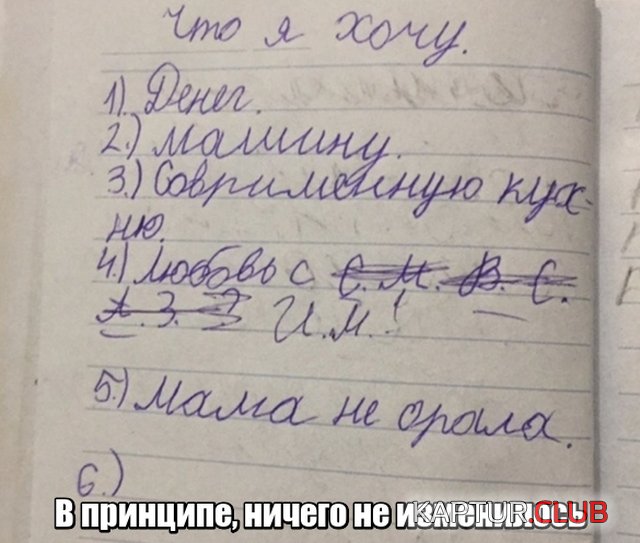 Что я хочу.
1). Денег.
2.) Машину.
3.) Соврименную кух-
ню.
4.) Любовь с С. М. В. С.
А. З. И.М.!
5.) Мама не орала.
6.)
В принципе, ничего не изменилось
KAPTUR.CLUB